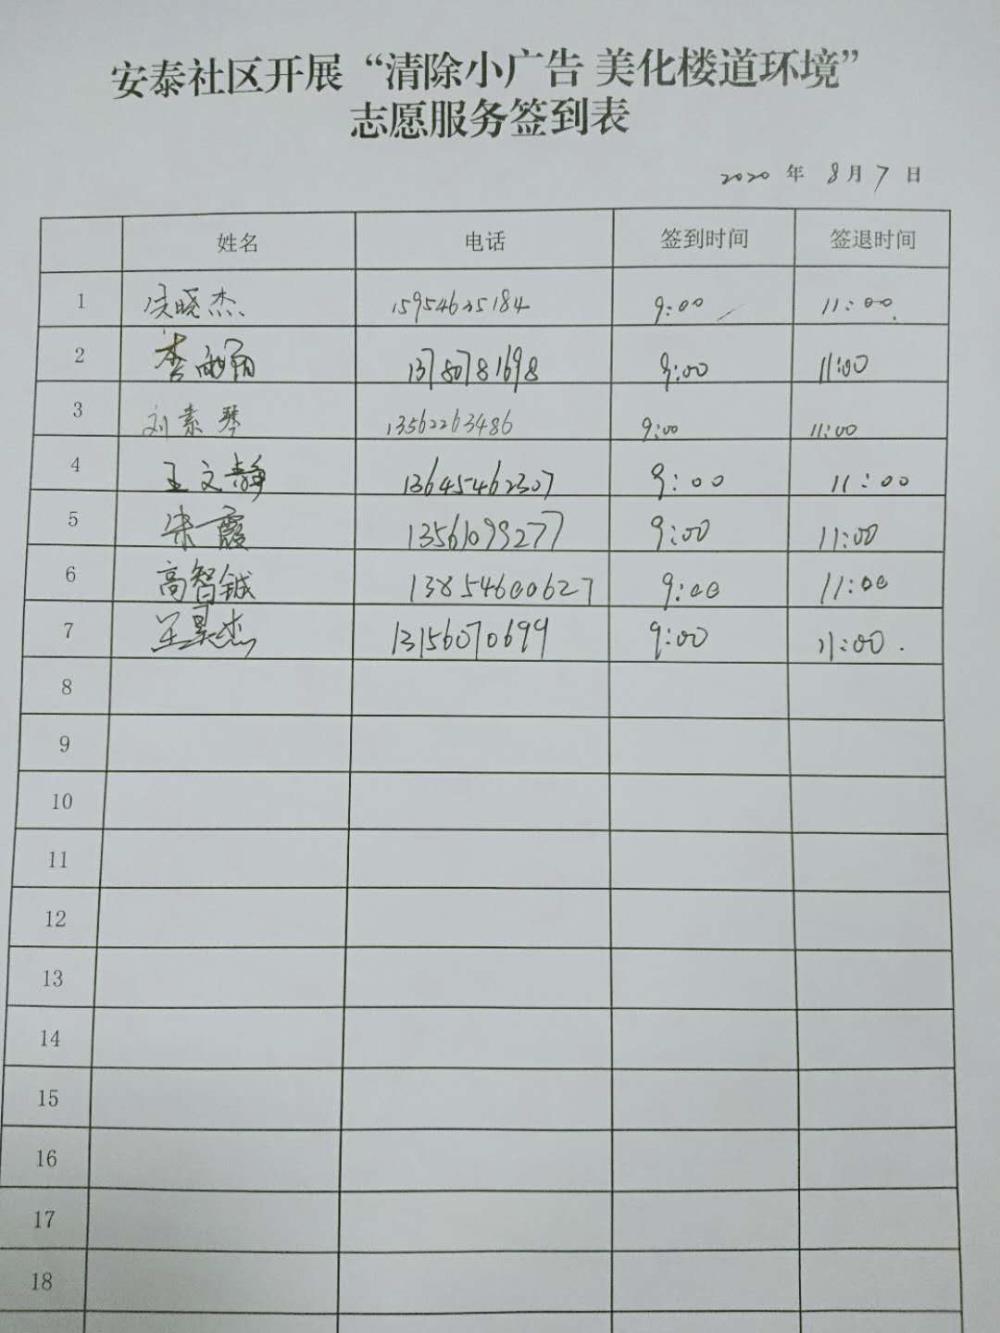 安泰社区开展“清除小广告 美化楼道环境”
志愿服务签到表
2020 年 8月7日
姓名 电话 签到时间 签退时间
1 侯晓杰 15954625184 9:00 11:00.
2 李 13780781698 9:00 11:00
3 刘素琴 13562263486 9:00 11:00
4 王文静 13645462307 9:00 11:00
5 宋霞 13561099277 9:00 11:00
6 高智铖 13854600627 9:00 11:00
7 王昊杰 13156070699 9:00 11:00.
8
9
10
11
12
13
14
15
16
17
18